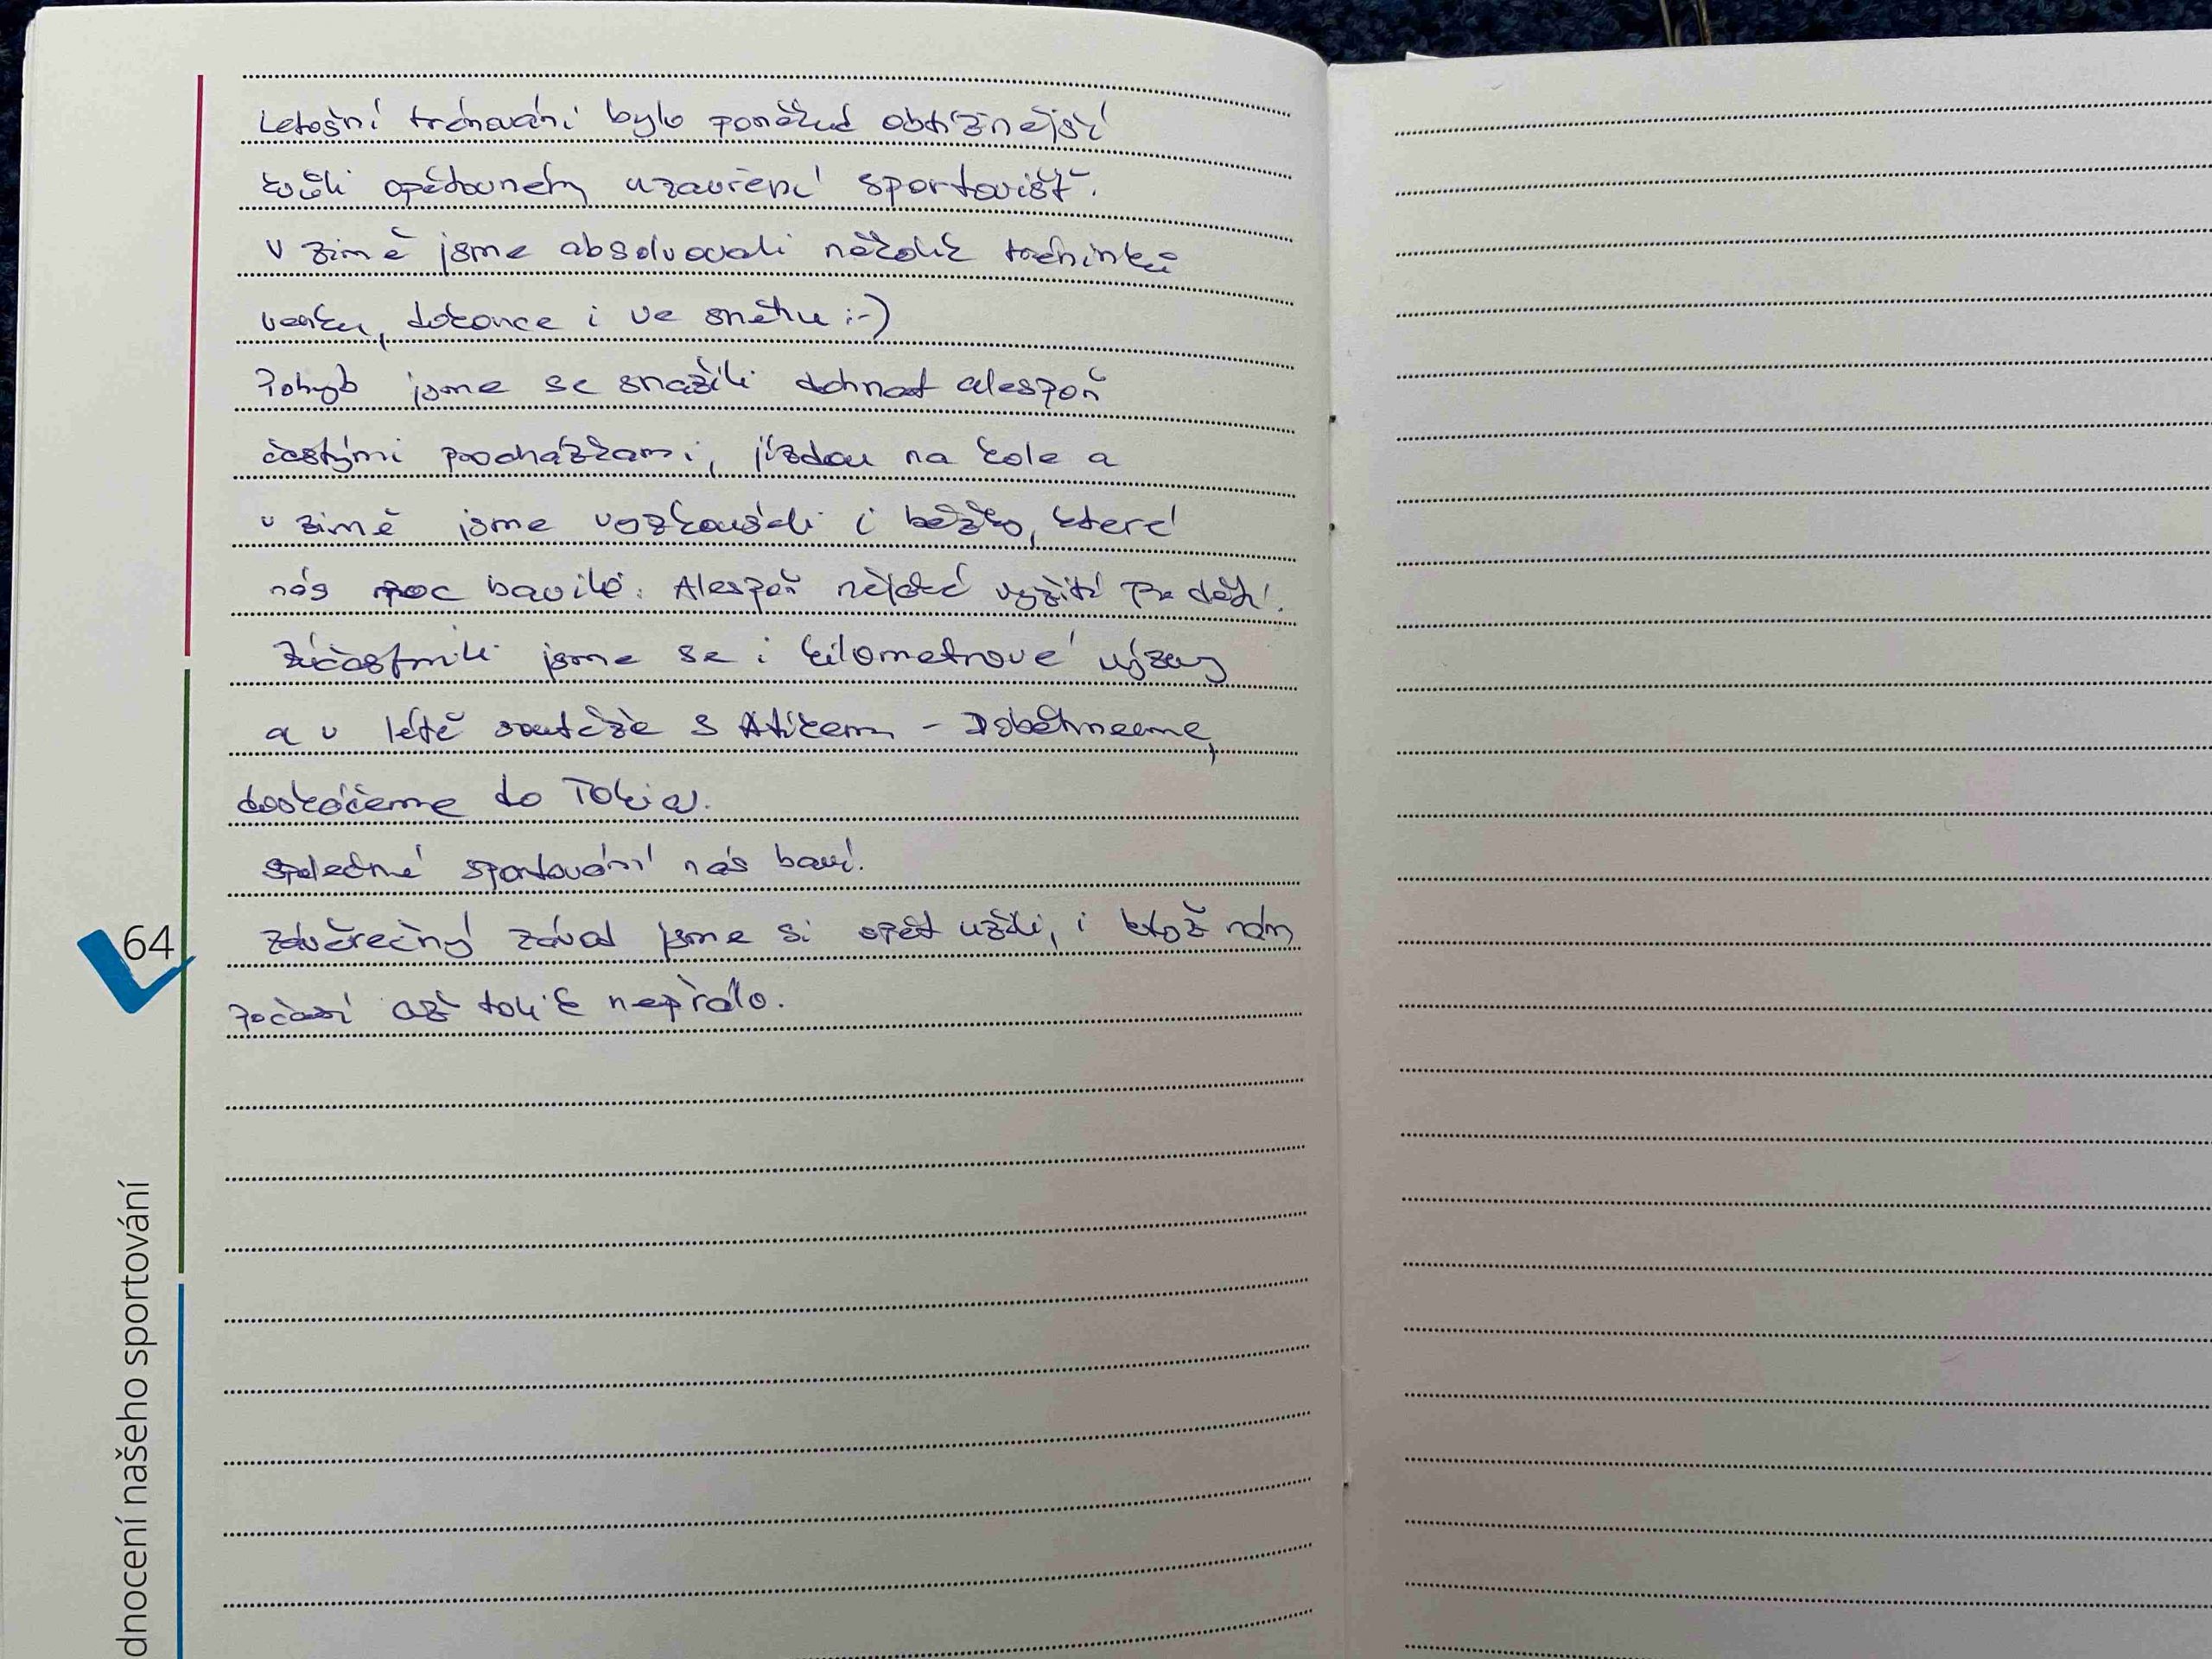 Letošní trénování bylo poněkud obtížnější
kvůli opětovném uzavření sportovišť.
V zimě jsme absolvovali několik tréninků
venku, dokonce i ve sněhu :-)
Pohyb jsme se snažili dohnat alespoň
častými procházkami, jízdou na kole a
v zimě jsme vyzkoušeli i běžky, které
nás moc bavili. Alespoň nějaké vyžití pro děti.
Zúčastnili jsme se i kilometrové výzvy
a v létě soutěže s Atikem - Doběhneme,
doskáčeme do Tokia.
Společné sportování nás baví.
Závěrečný závod jsme si opět užili, i když nám
počasí až tolik nepřálo.
64
dnocení našeho sportování